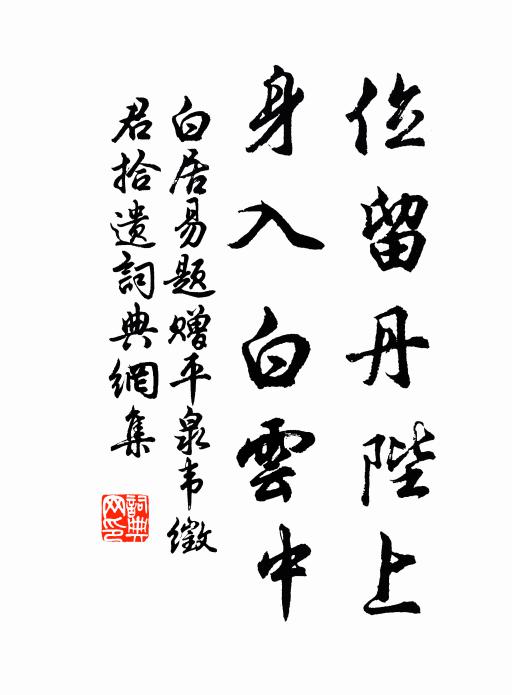 位留丹陛上
身入白雲中
白居易题赠平泉韦徵
君拾遗詞典網集
詞典網印